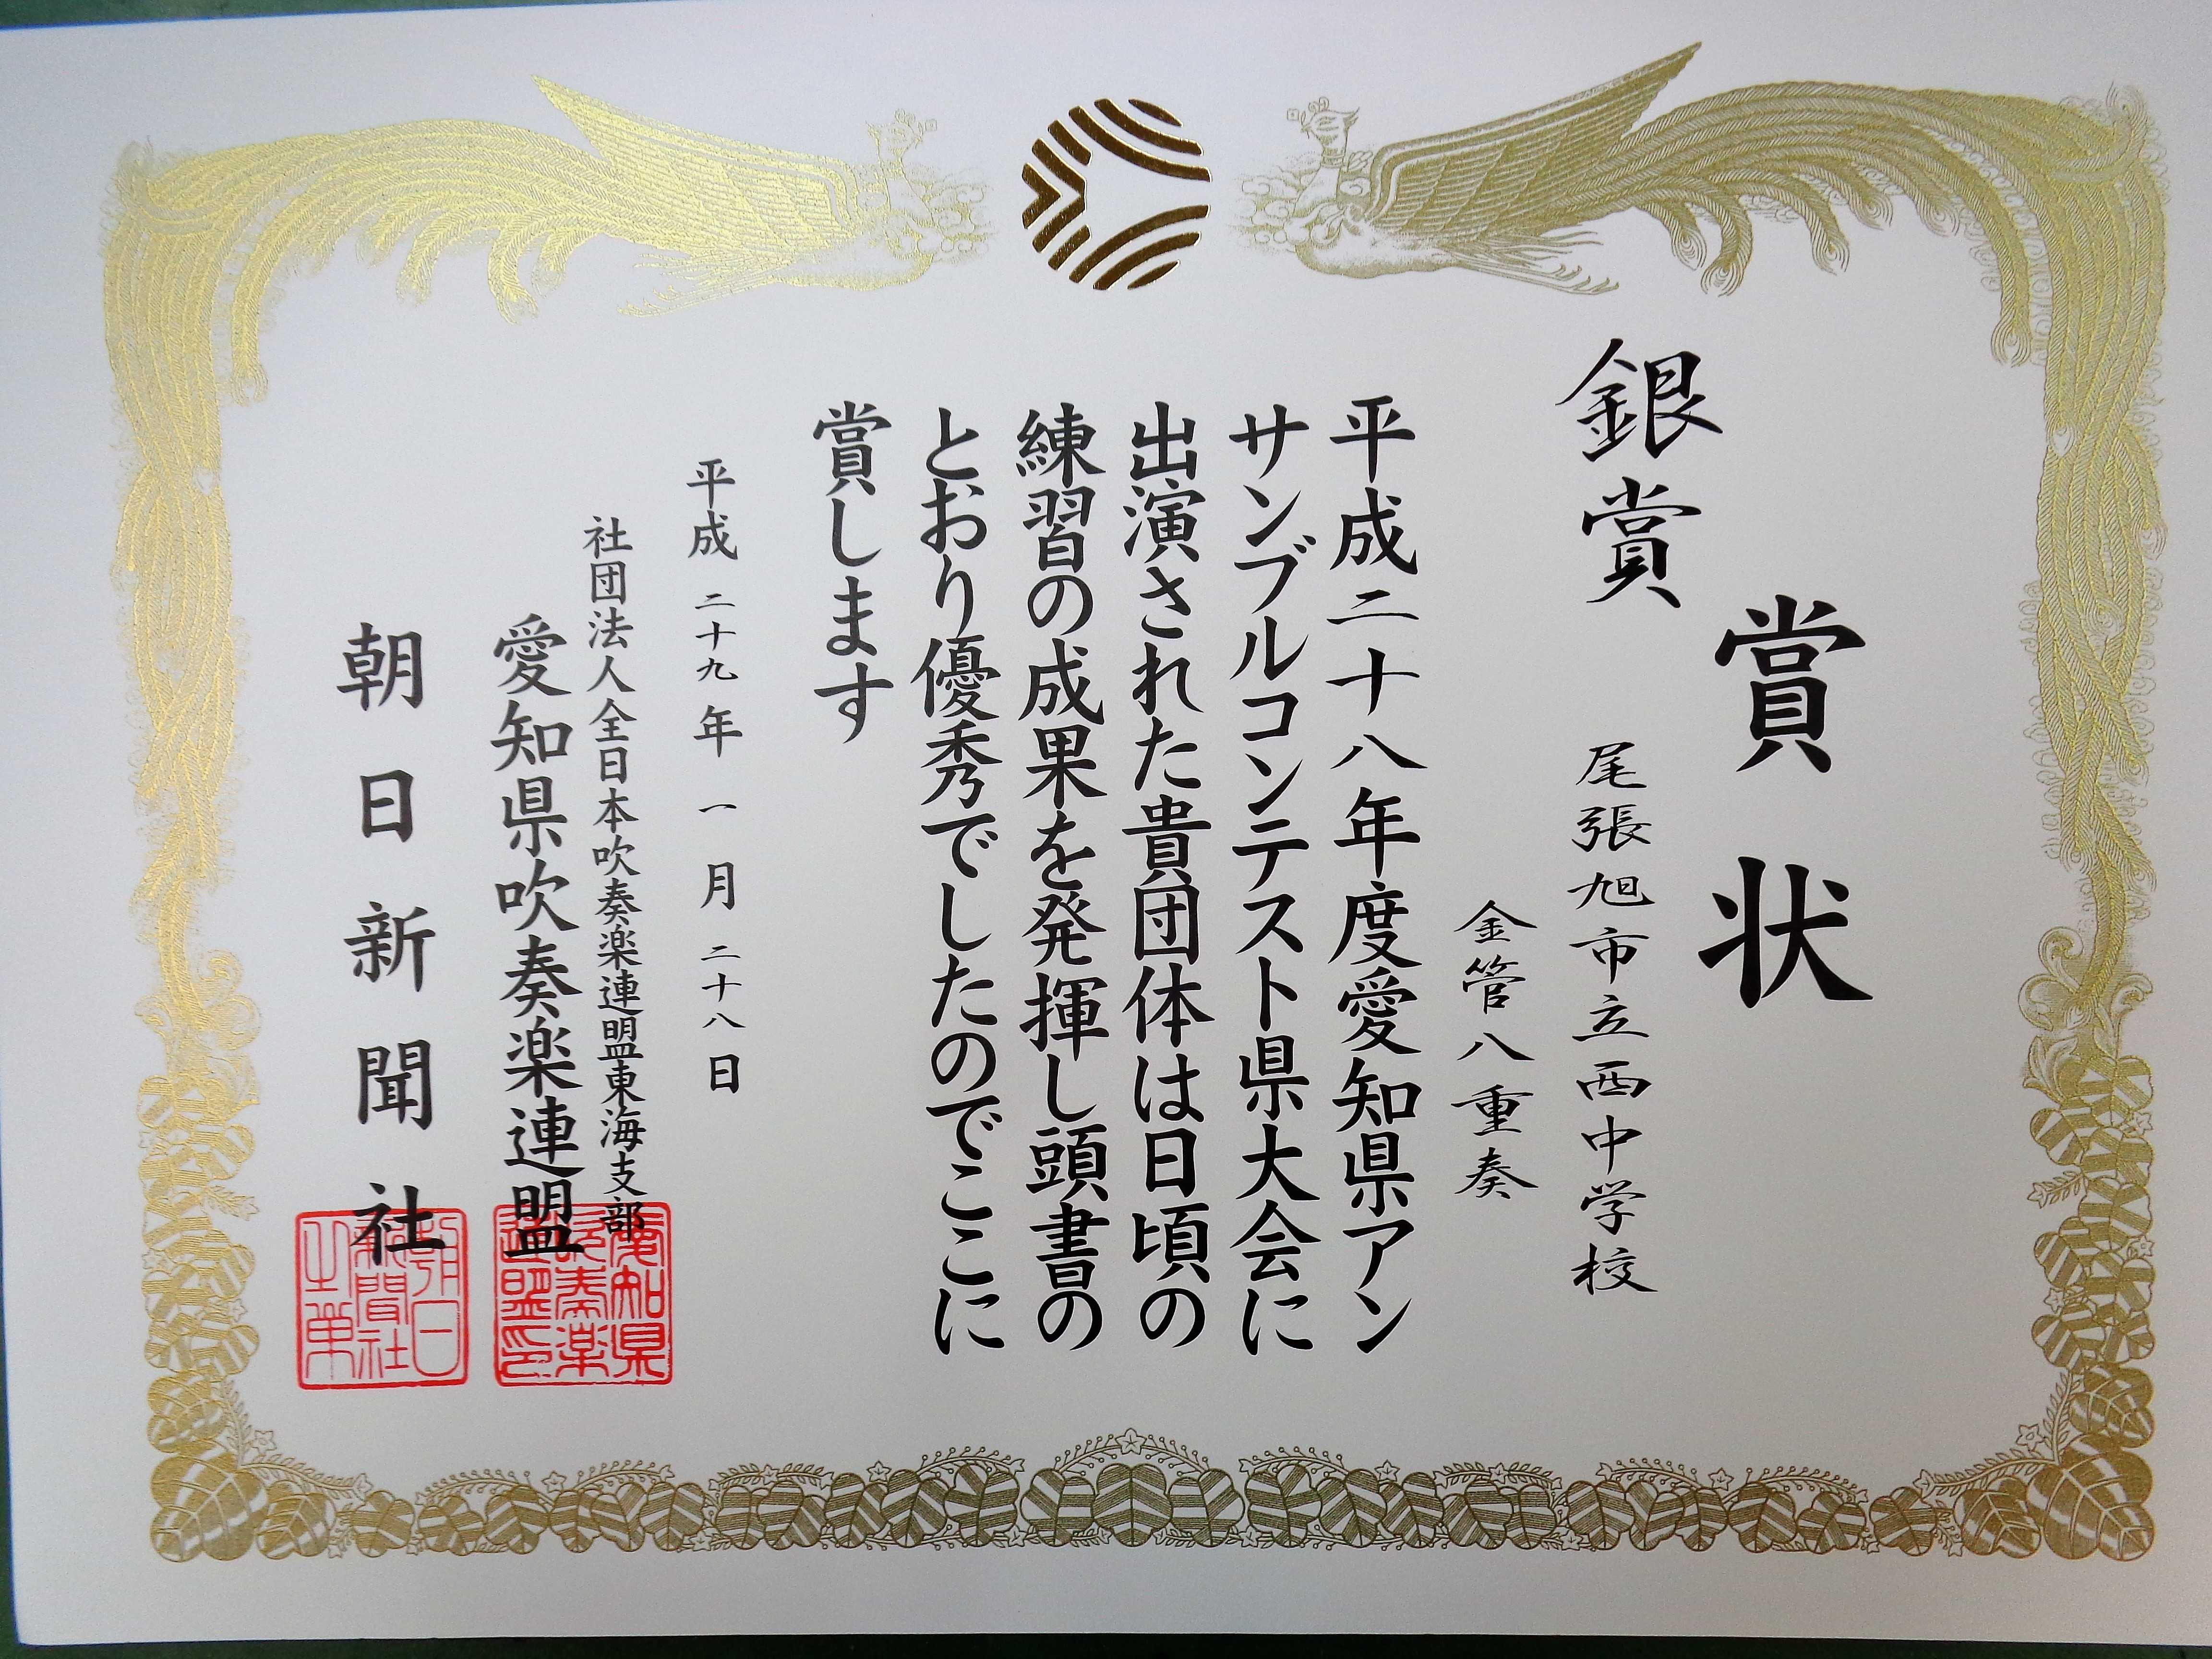 賞状
銀賞
尾張旭市立西中学校
金管八重奏
平成二十八年度愛知県アン
サンブルコンテスト県大会に
出演された貴団体は日頃の
練習の成果を発揮し頭書の
とおり優秀でしたのでここに
賞します
平成二十九年一月二十八日
社団法人全日本吹奏楽連盟東海支部
愛知県吹奏楽連盟
愛知県
吹奏楽
連盟印
朝日新聞社
朝日
新聞社
之章